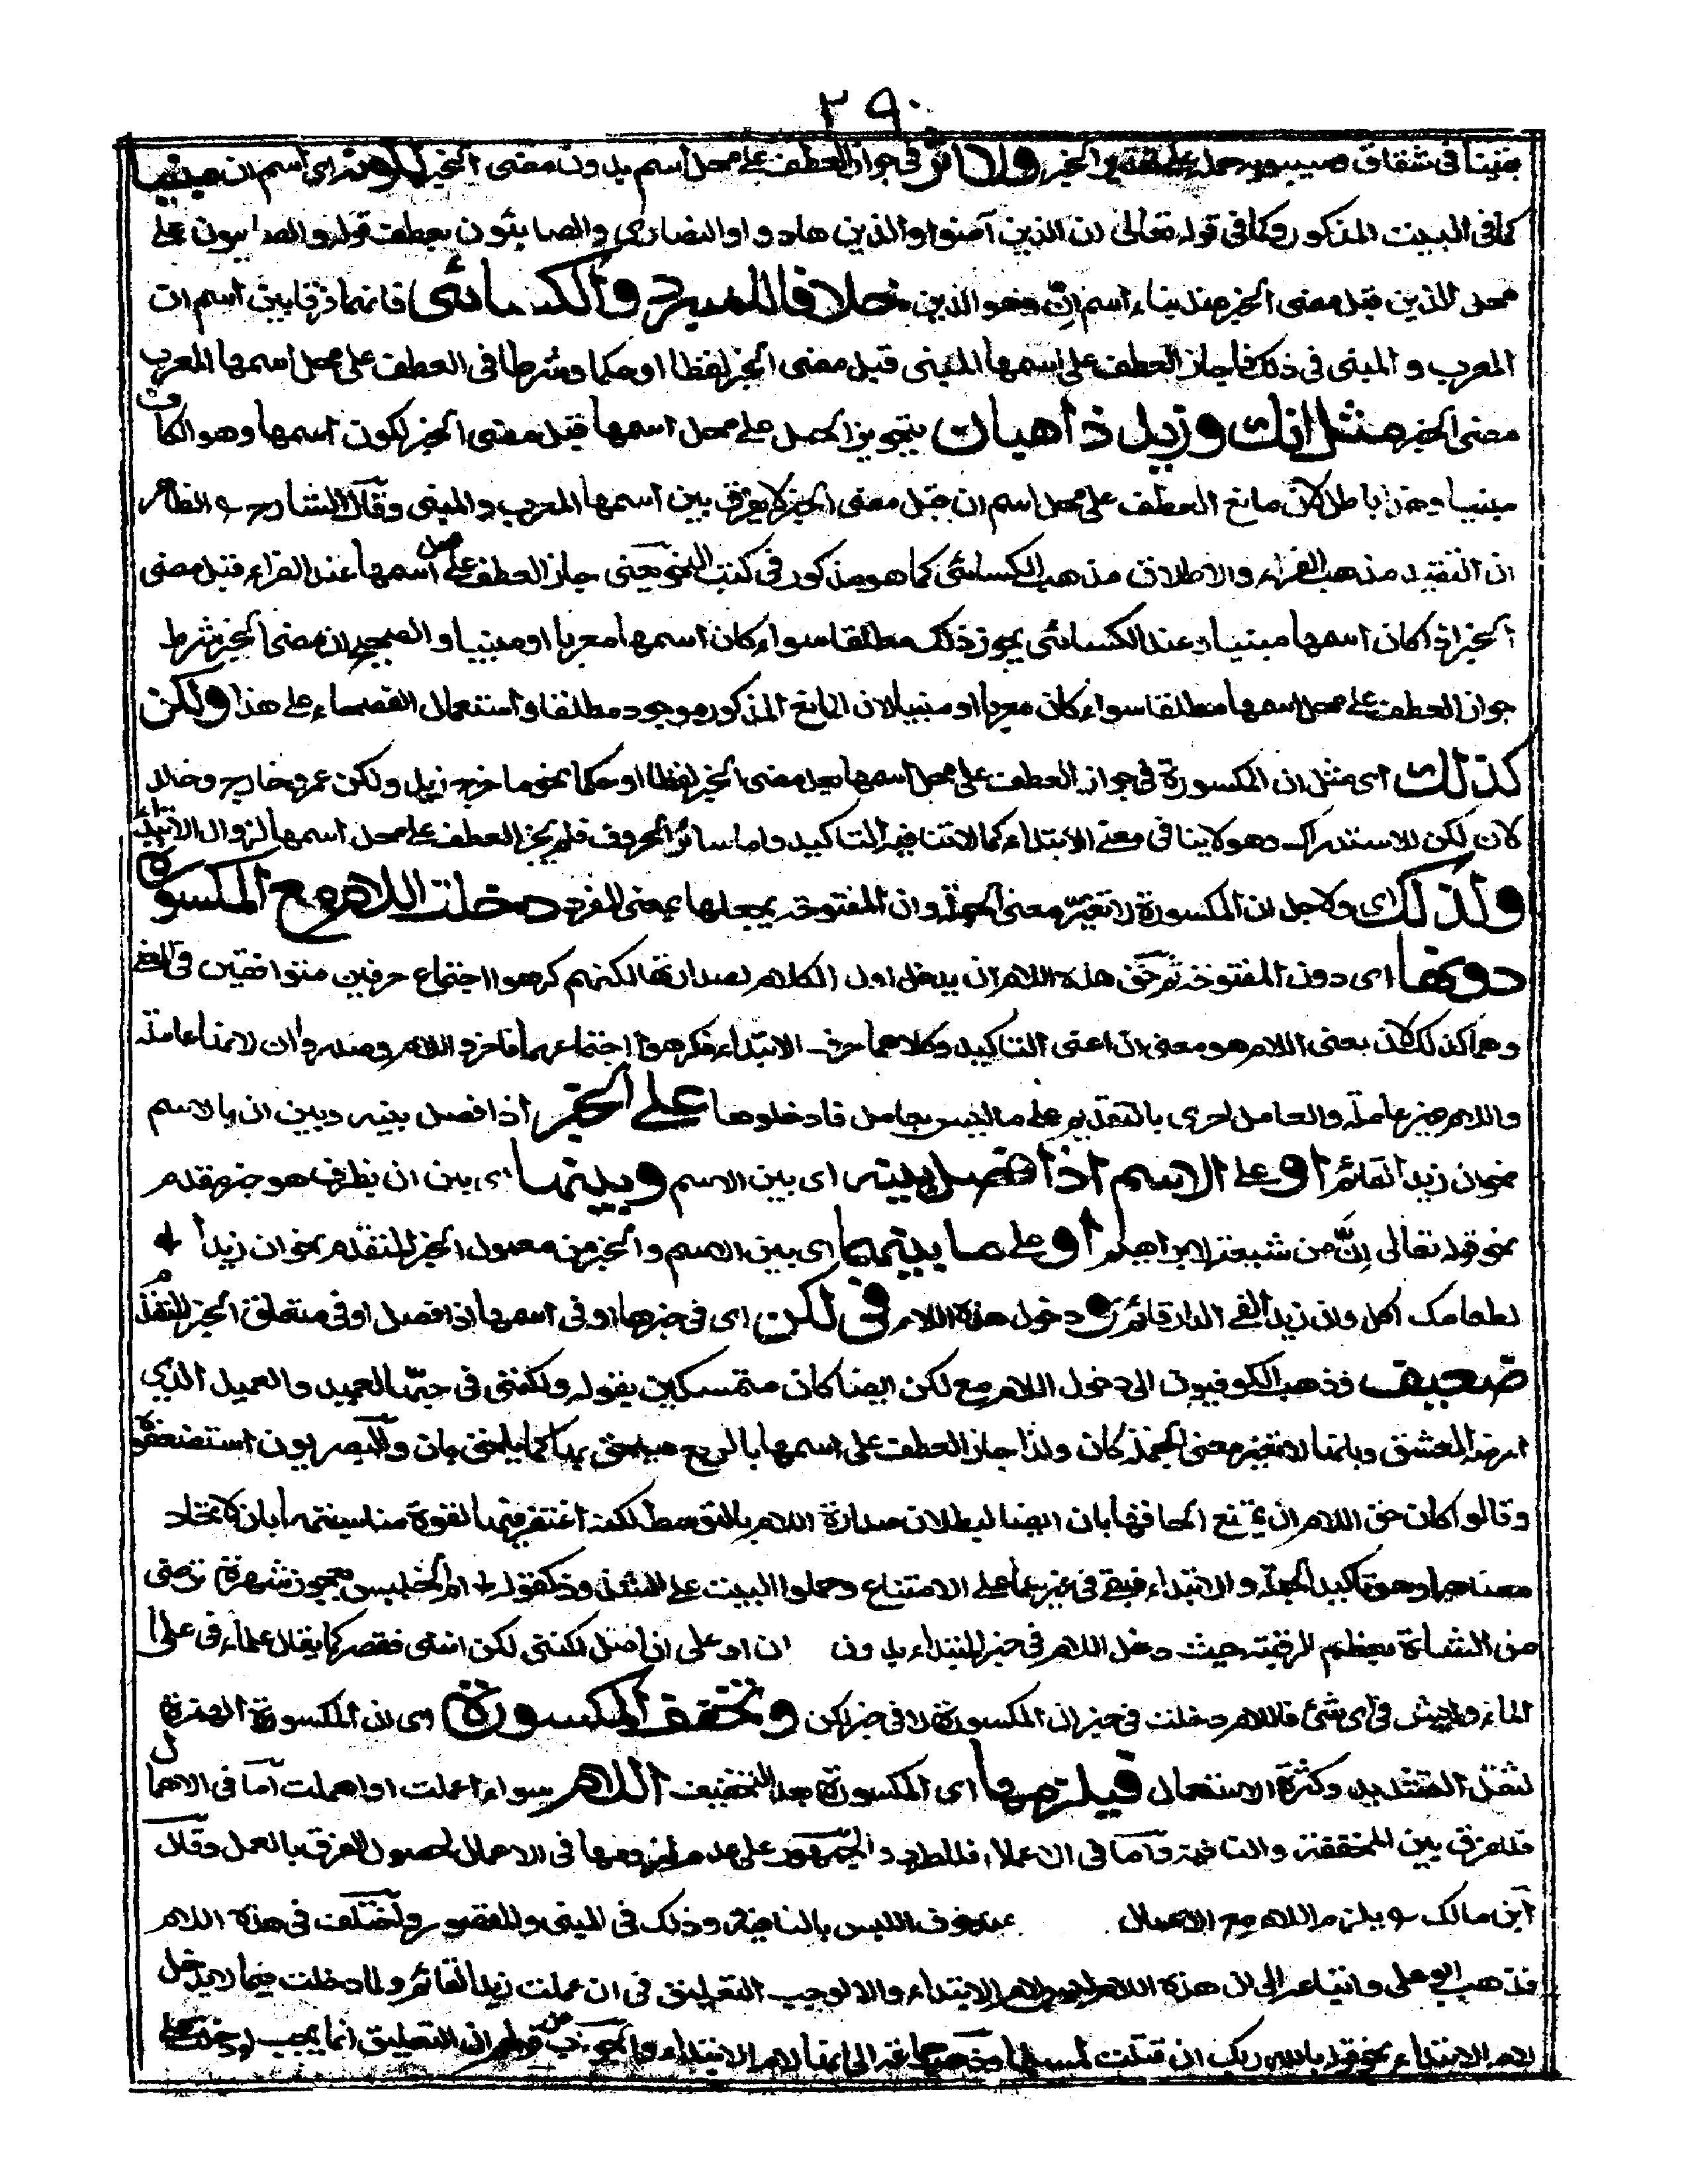 ٢٩٠
بقينا في شقاق سيبويه حمل على تقدير الخبر ولا اثر في جواز العطف على محل اسم بدون مضى الخبر لكونه اى اسم ان مبنيا
كما في البيت المذكور وكما في قوله تعالى ان الذين آمنوا والذين هادوا والنصارى والصابئون بعطف قوله والصابيون على
محل الذين قبل مضى الخبر عند بناء اسم انّ وهو الذين خلافا للمبرد والكسائى فانهما فرقا بين اسم ان
المعرب و المبنى فى ذلك فاجاز العطف على اسمها المبنى قبل مضى الخبر لفظا او حكما وشرطا فى العطف على محل اسمها المعرب
مضى الخبر مثل انك وزيد ذاهبان بتجويز الحمل على محل اسمها قبل مضى الخبر لكون اسمها وهو الكاف
مبنيا وهذا باطل لان مانع العطف على محل اسم ان قبل مضى الخبر لا يفرق بين اسمها المعرب والمبنى وقال الشارح والظاهر
ان التقييد مذهب الفراء والاطلاق مذهب الكسائى كما هو مذكور فى كتب النحو يعنى جاز العطف على محل اسمها عند الفراء قبل مضى
الخبر اذا كان اسمها مبنيا وعند الكسائى يجوز ذلك مطلقا سواء كان اسمها معربا او مبنيا والصحيح ان مضى الخبر شرط
جواز العطف على محل اسمها مطلقا سواء كان معربا او مبنيا لان المانع المذكور موجود مطلقا واستعمال الفصحاء على هذا ولكن
كذلك اى مثل ان المكسورة فى جواز العطف على محل اسمها بعد مضى الخبر لفظا او حكما نحو ما خرج زيد ولكن عمرا خارج وخالد
لان لكن للاستدراك وهو لاينافى معنى الابتداء كما لاتنافيه التاكيد واما سائر الحروف فلم يجز العطف على محل اسمها لزوال الابتداء
ولذلك اى ولاجل ان المكسورة لا تغيّر معنى الجملة وان المفتوحة يجعلها بمعنى المفرد دخلت اللام مع المكسورة
دونها اى دون المفتوحة ثم حق هذه اللام ان يدخل اول الكلام لصدارتها لكنهم كرهوا اجتماع حرفين متوافقين فى المعنى
وهما كذلك لان معنى اللام هو معنى ان اعنى التاكيد وكلاهما حرف الابتداء فكرهوا اجتماعهما فاخروا اللام وصدروا ان لانها عاملة
واللام غير عاملة والعامل احرى بالتقديم على ما ليس بعامل فادخلوها على الخبر اذا فصل بينه وبين ان بالاسم
نحو ان زيدا لقائم او على الاسم اذا فصل بينه اى بين الاسم وبينها اى بين ان بظرف هو خبر مقدم
نحو قوله تعالى انّ من شيعته لابراهيم او على ما بينهما اى بين الاسم والخبر من معمول الخبر المتقدم نحو ان زيدا
لطعامك اكل وان زيدا لفى الدار قائم و دخول هذه اللام فى لكن اى فى خبرها او فى اسمها اذا فصل او فى متعلق الخبر المتقدم
ضعيف فذهب الكوفيون الى دخول اللام مع لكن ايضا كان متمسكين بقوله ولكننى فى حبها لعميد والعميد الذى
امرضه العشق وبانها لاتغير معنى الجملة كان ولذا جاز العطف على اسمها بالرفع كما يلحق بان والبصريون استضعفوه
وقالوا كان حق اللام ان يمتنع الحاقها بان ايضا لبطلان صدارة اللام بالتوسط لكنه اغتفر فيها لقوة مناسبتها بان لاتحاد
معناهما وهو تاكيد الجملة والابتداء فبقى فى غيرها على الامتناع وحملوا البيت على الشذوذ كقوله ام الحليس لعجوز شهربة ترضى
من الشاة بعظم الرقبة حيث دخل اللام فى خبر المبتداء بدون ان او على ان اصل لكننى لكن اننى فقصر كما يقال علماء فى على
الماء و ايش فى اى شئ فاللام دخلت فى خبر ان المكسورة لا فى خبر لكن وتخفف المكسورة اى ان المكسورة الهمزة
لثقل التشديد وكثرة الاستعمال فيلزمها اى المكسورة بعد التخفيف اللام سواء اعملت او اهملت اما فى الاهمال
فللفرق بين المخففة والنافية واما فى الاعمال فللطرد والجمهور على عدم لزومها فى الاعمال لحصول الفرق بالعمل وقال
ابن مالك ويلزم اللام مع الاعمال عند خوف اللبس بالنافية وذلك فى المبنى والمقصور واختلف فى هذه اللام
فذهب ابو على واتباعه الى ان هذه اللام ليس لام الابتداء والا لوجب التعليق فى ان عملت زيدا لقائم ولما دخلت فيما لايدخل
لام الابتداء نحو قوله بالله ربك ان قتلت لمسلما وذهب جماعة الى انها لام الابتداء والجواب عن قولهم ان التعليق انما يجب لو دخلت على